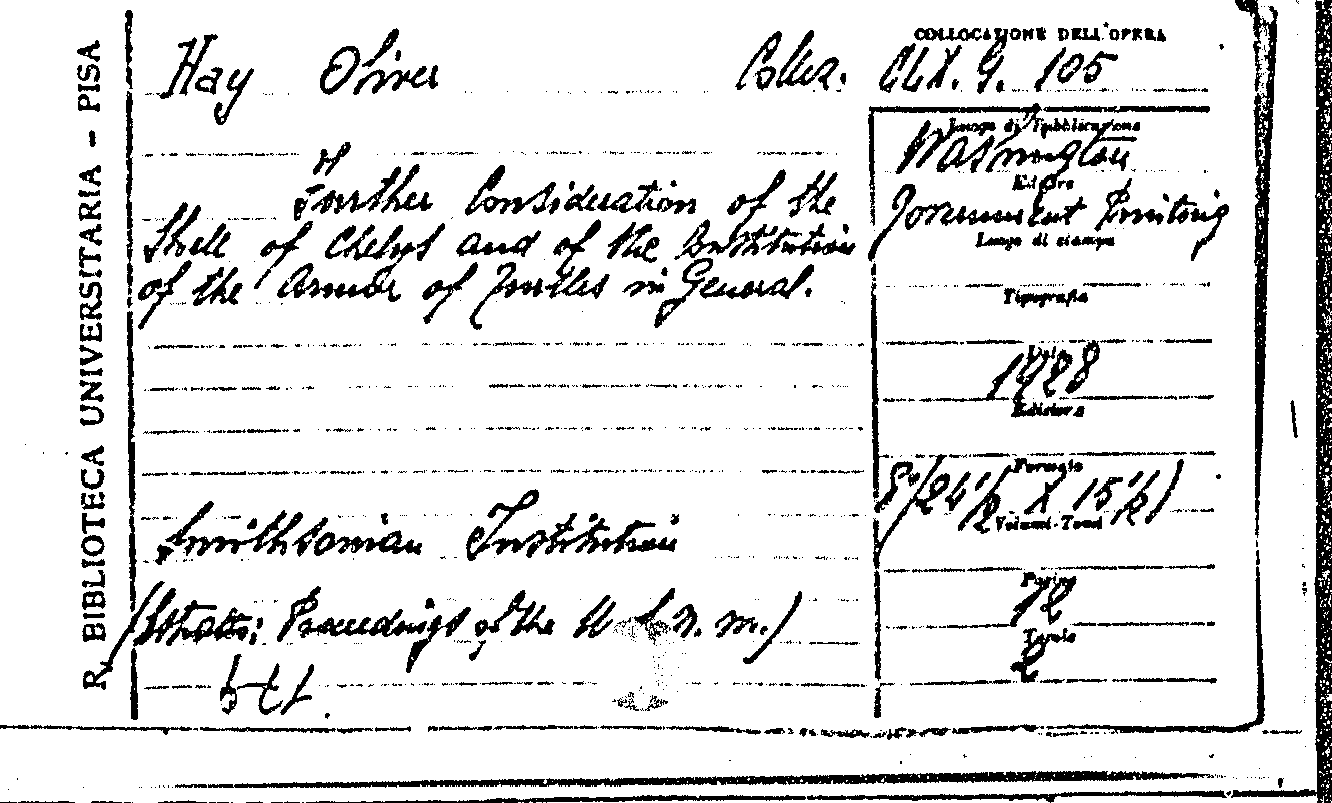 R. BIBLIOTECA UNIVERSITARIA - PISA
Hay Oliver
COLLOCAZIONE DELL'OPERA
CLX. G. 105
Luogo di Pubblicazione
Washington
Editore
Government Printing
Luogo di stampa
Tipografia
1928
Edizione
Formato
8°/24½ X 15½)
Volumi-Tomi
Pagine
12
Tavole
2
Further Consideration of the
Shell of Chelys and of the Constitution
of the Armor of Turtles in General.
Smithsonian Institution
(Estratto: Proceedings of the U. S. N. M.)